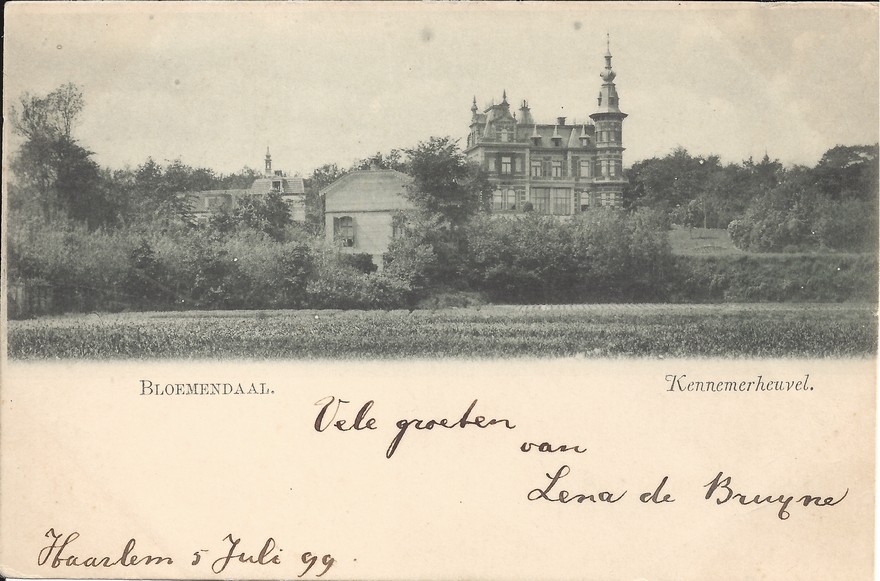 BLOEMENDAAL.
Kennemerheuvel.
Vele groeten
van
Lena de Bruyne
Haarlem 5 Juli 99.